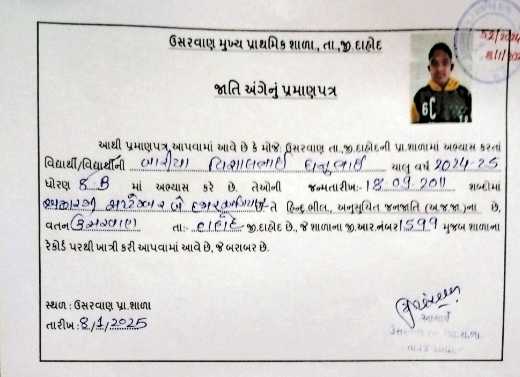 ઉસરવાણ મુખ્ય પ્રાથમિક શાળા., તા.,જી.દાહોદ
52/2024
8/1/202
જાતિ અંગેનું પ્રમાણપત્ર
6C
આથી પ્રમાણપત્ર આપવામાં આવે છે કે મોજે: ઉસરવાણ તા.,જી.દાહોદની પ્રા.શાળામાં અભ્યાસ કરતાં
વિદ્યાર્થી/વિદ્યાર્થીની બારીયા વિશાલભાઈ ધનુભાઈ ચાલુ વર્ષ 2024-25
ધોરણ 8 B માં અભ્યાસ કરે છે. તેઓની જન્મતારીખ:- 18.09.2011 શબ્દોમાં
અઢારમી સપ્ટેમ્બર બે હજાર અગિયાર છે- તે હિન્દુ ભીલ., અનુસુચિત જનજાતિ (અ.જ.જા.) ના છે,
વતન ઉસરવાણ તા:- દાહોદ જી.દાહોદ છે., જે શાળાના જી.આર.નંબર 1599 મુજબ શાળાના
રેકોર્ડ પરથી ખાત્રી કરી આપવામાં આવે છે, જે બરાબર છે.
સ્થળ : ઉસરવાણ પ્રા.શાળા
તારીખ : 8/1/2025
આચાર્ય